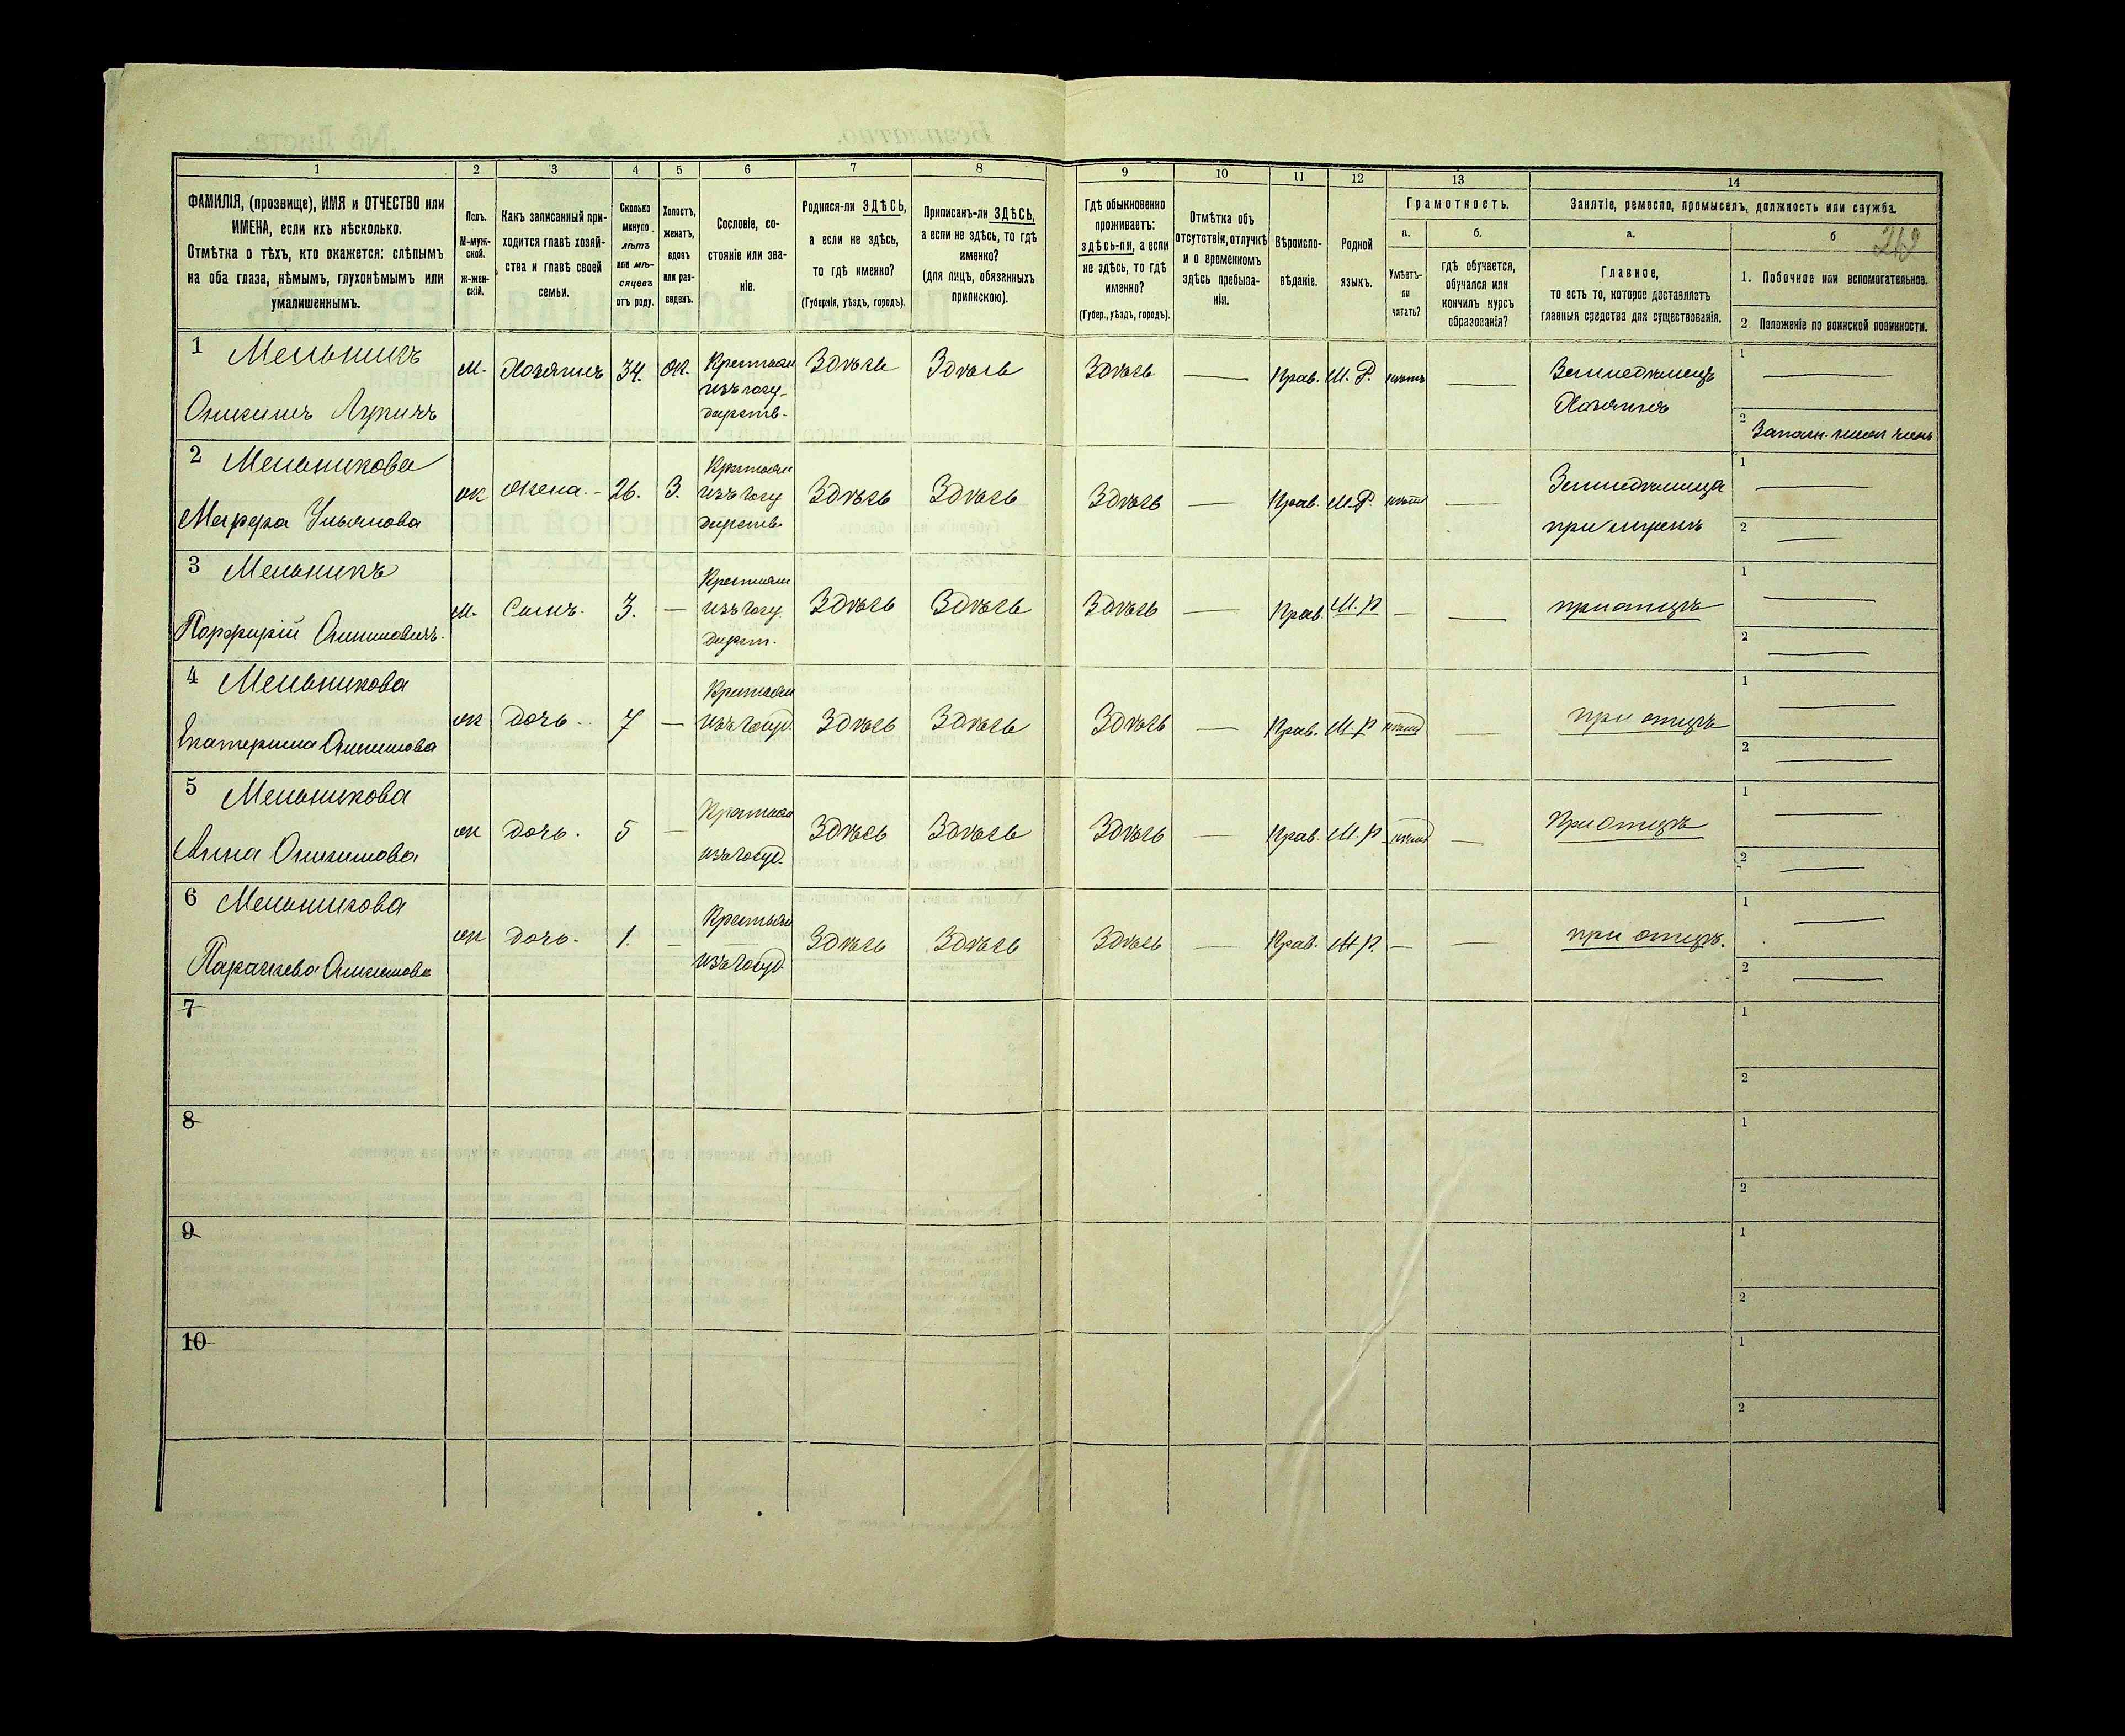 1 2 3 4 5 6 7 8 9 10 11 12 13 14
ФАМИЛІЯ, (прозвище), ИМЯ и ОТЧЕСТВО или
ИМЕНА, если ихъ нѣсколько.
Отмѣтка о тѣхъ, кто окажется: слѣпымъ
на оба глаза, нѣмымъ, глухонѣмымъ или
умалишеннымъ.
Полъ.
М-муж-
ской.
ж-жен-
скій.
Какъ записанный при-
ходится главѣ хозяй-
ства и главѣ своей
семьи.
Сколько
минуло
лѣтъ
или мѣ-
сяцевъ
отъ роду.
Холостъ,
женатъ,
вдовъ
или раз-
веденъ.
Сословіе, со-
стояніе или зва-
ніе.
Родился-ли ЗДѢСЬ,
а если не здѣсь,
то гдѣ именно?
(Губернія, уѣздъ, городъ).
Приписанъ-ли ЗДѢСЬ,
а если не здѣсь, то гдѣ
именно?
(для лицъ, обязанныхъ
припискою).
Гдѣ обыкновенно
проживаетъ:
здѣсь-ли, а если
не здѣсь, то гдѣ
именно?
(Губер., уѣздъ, городъ).
Отмѣтка объ
отсутствіи, отлучкѣ
и о временномъ
здѣсь пребыва-
ніи.
Вѣроиспо-
вѣданіе.
Родной
языкъ.
Грамотность.
а.
Умѣетъ-
ли
читать?
б.
гдѣ обучается,
обучался или
кончилъ курсъ
образованія?
Занятіе, ремесло, промыселъ, должность или служба.
а.
Главное,
то есть то, которое доставляетъ
главныя средства для существованія.
б 262
1. Побочное или вспомогательное.
2. Положеніе по воинской повинности.
1 Мельникъ
Онисимъ Лукичъ
М. Хозяинъ 34. Ж.
Крестьян
изъ госу-
дарств.
Здѣсь Здѣсь Здѣсь — Прав. М. Р. нѣтъ —
Земледѣлецъ
Хозяинъ
1 —
2 Запасн.
2 Мельникова
Марфа Ульянова
Ж Жена. 26. З.
Крестьян
изъ госу
дарств.
Здѣсь Здѣсь Здѣсь — Прав. М.Р. нѣтъ —
Земледѣлица
при мужѣ
1 —
2 —
3 Мельникъ
Порфирій Онисимовичъ.
М. Сынъ. 3. —
Крестьян
изъ госу
дарст.
Здѣсь Здѣсь Здѣсь — Прав. М. р — —
при отцѣ
1 —
2 —
4 Мельникова
Екатерина Онисимова
Ж Дочь 7 —
Крестьян
изъ госуд.
Здѣсь Здѣсь Здѣсь — Прав. М. р нѣтъ —
при отцѣ
1 —
2 —
5 Мельникова
Анна Онисимова
Ж Дочь. 5 —
Крестьян
изъ госуд.
Здѣсь Здѣсь Здѣсь — Прав. М. р нѣтъ —
При отцѣ
1 —
2 —
6 Мельникова
Параскева Онисимова
Ж Дочь. 1. —
Крестьян
изъ госуд.
Здѣсь Здѣсь Здѣсь — Прав. М р. — —
при отцѣ.
1 —
2 —
7
1
2
8
1
2
9
1
2
10
1
2